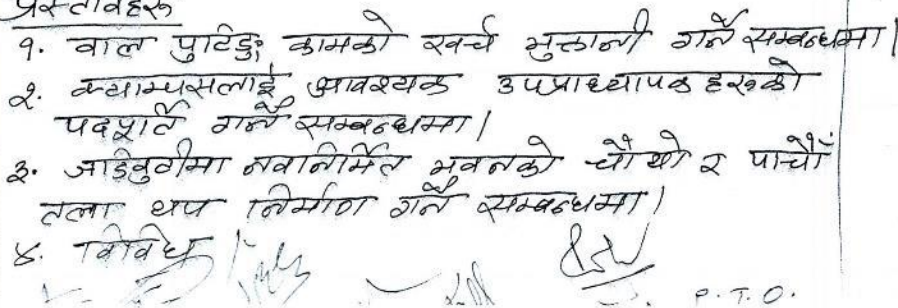 प्रस्तावहरू
१. वाल पुटिङ्ग कामको खर्च भुक्तानी गर्ने सम्बन्धमा।
२. क्याम्पसलाई आवश्यक उपप्राध्यापकहरूको
पदपूर्ति गर्ने सम्बन्धमा।
३. जडिबुटीमा नवनिर्मित भवनको चौथो र पाचौँ
तला थप निर्माण गर्ने सम्बन्धमा।
४. विविध
P.T.O.